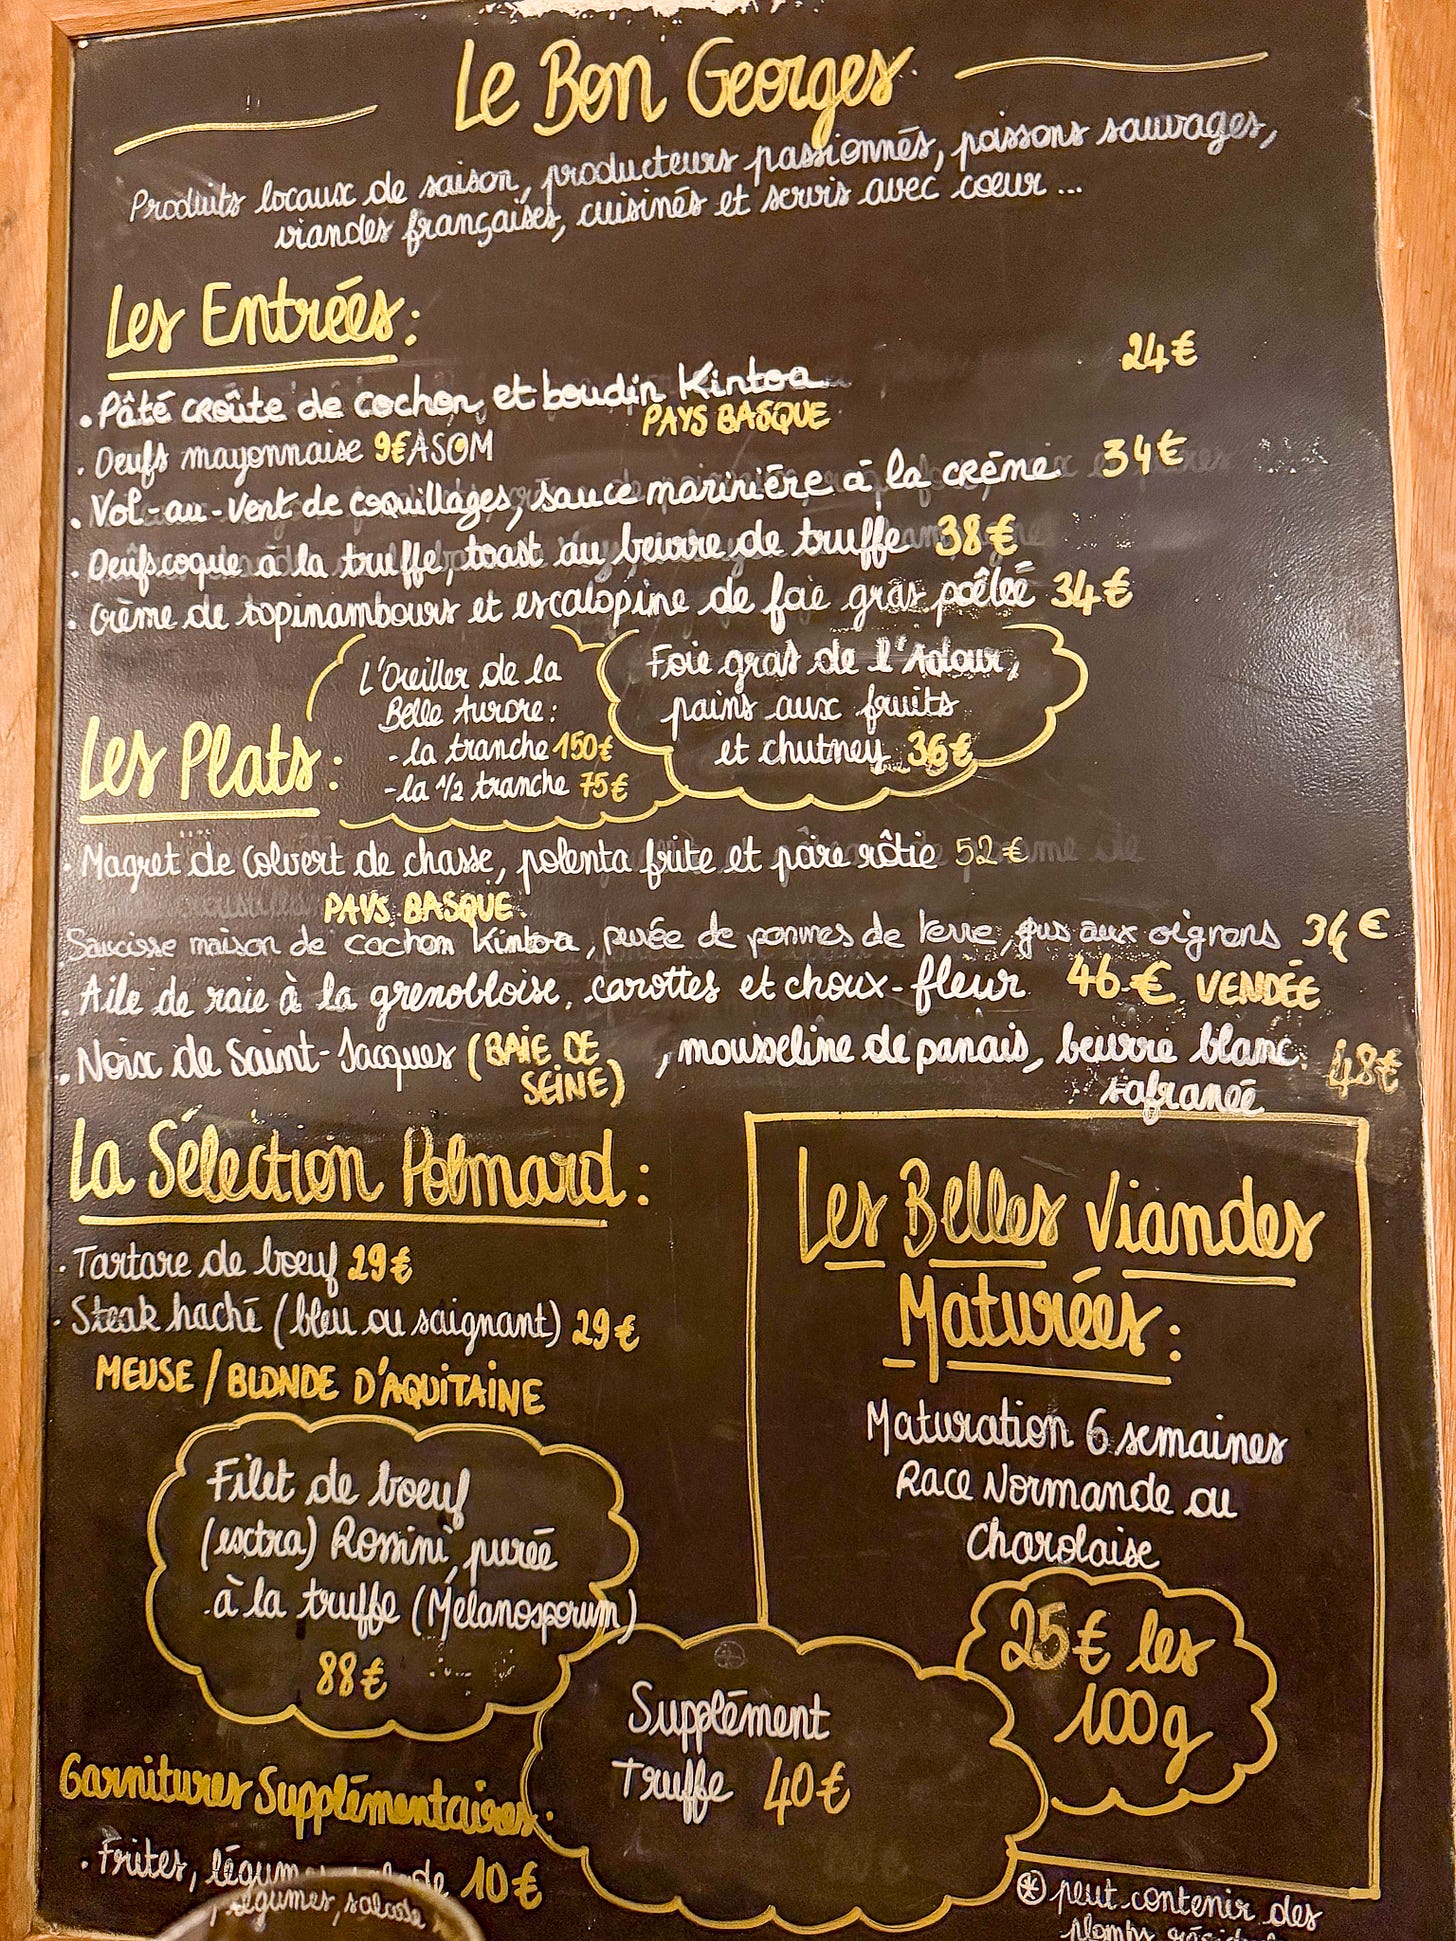 Le Bon Georges
Produits locaux de saison, producteurs passionnés, poissons sauvages,
viandes françaises, cuisinés et servis avec cœur ...
Les Entrées :
. Pâté croûte de cochon et boudin Kintoa 24€
PAYS BASQUE
. Oeufs mayonnaise 9€ ASOM
. Vol-au-vent de coquillages, sauce marinière à la crème 34€
. Oeufs coque à la truffe, toast au beurre de truffe 38€
. Crème de topinambours et escalopine de foie gras poêlée 34€
L'Oreiller de la
Belle Aurore :
- la tranche 150€
- la 1/2 tranche 75€
Foie gras de l'Adour,
pains aux fruits
et chutney 36€
Les Plats :
. Magret de Colvert de chasse, polenta frite et poire rôtie 52€
PAYS BASQUE
Saucisse maison de cochon Kintoa, purée de pommes de terre, jus aux oignons 34€
. Aile de raie à la grenobloise, carottes et choux-fleur 46€ VENDÉE
. Noix de Saint-Jacques (BAIE DE , mousseline de panais, beurre blanc 48€
SEINE) safrané
La Sélection Polmard :
. Tartare de bœuf 29€
. Steak haché (bleu ou saignant) 29€
MEUSE / BLONDE D'AQUITAINE
Filet de bœuf
(extra) Rossini, purée
à la truffe (Mélanosporum)
88€
Les Belles Viandes
Maturées :
Maturation 6 semaines
Race Normande ou
Charolaise
25€ les
100g
Supplément
Truffe 40€
Garnitures Supplémentaires :
. Frites, légumes, salade 10€
légumes, salade
* peut contenir des
plombs